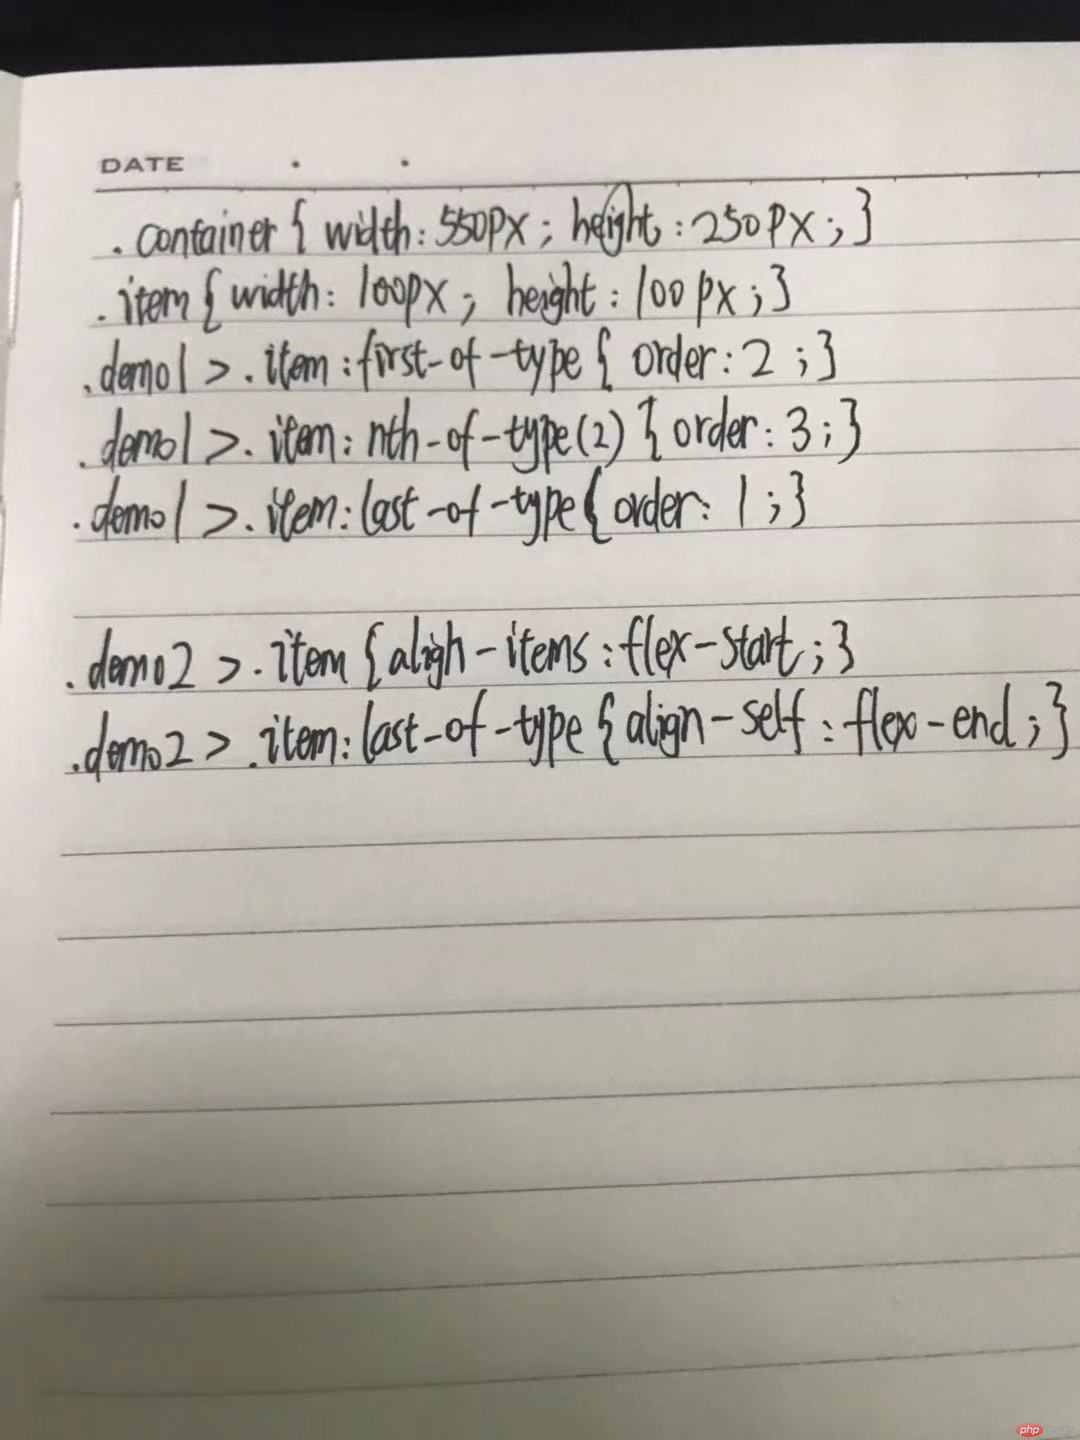 DATE
.container { width: 550px; height: 250px; }
.item { width: 100px; height: 100px; }
.demo1 > .item:first-of-type { order: 2; }
.demo1 > .item:nth-of-type(2) { order: 3; }
.demo1 > .item:last-of-type { order: 1; }
.demo2 > .item { aligh-items: flex-start; }
.demo2 > .item:last-of-type { align-self: flex-end; }
php